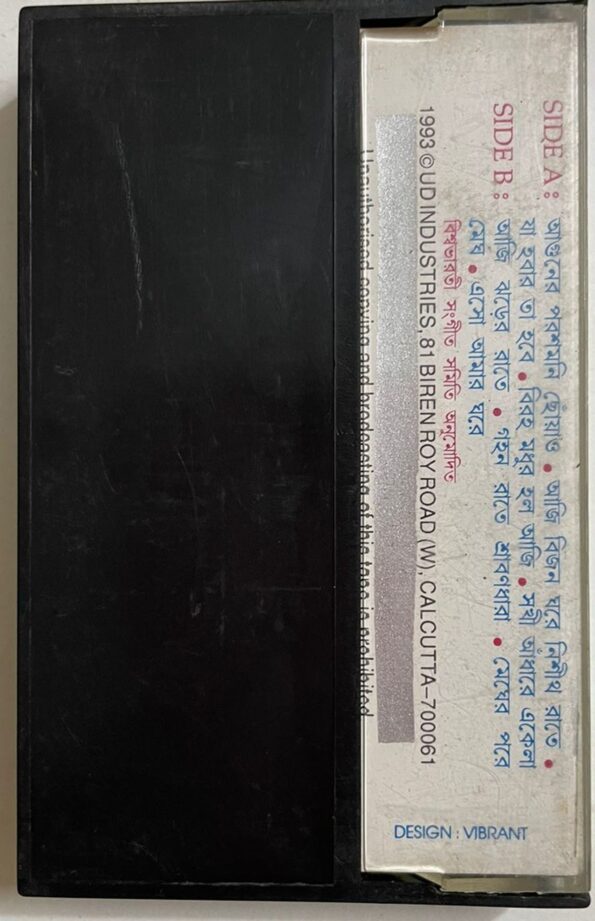 SIDE A : আগুনের পরশমনি ছোঁয়াও • আজি বিজন ঘরে নিশীথ রাতে •
যা হবার তা হবে • বিরহ মধুর হল আজি • সখী আঁধারে একেলা
SIDE B : আজি ঝড়ের রাতে • গহন রাতে শ্রাবণধারা • মেঘের পরে
মেঘ • এসো আমার ঘরে
বিশ্বভারতী সংগীত সমিতি অনুমোদিত
1993 © UD INDUSTRIES, 81 BIREN ROY ROAD (W), CALCUTTA-700061
Unauthorised copying and brodcasting of this tape is prohibited
DESIGN : VIBRANT